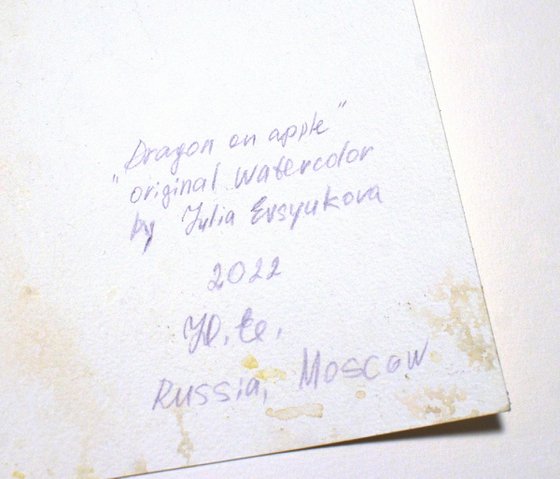 "Dragon on apple"
original watercolor
by Yulia Evsyukova
2022
Ю.Ев.
Russia, Moscow